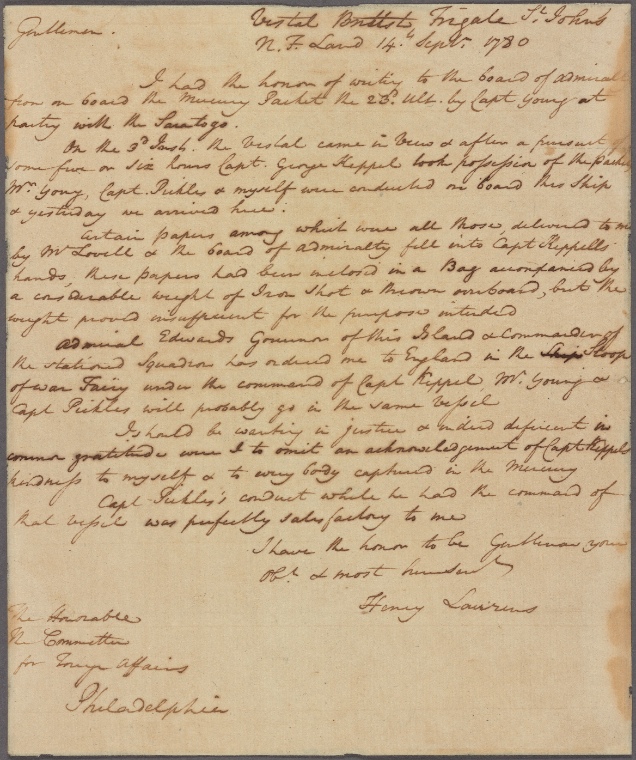 Vestal British Frigate St. Johns
Gentlemen.
N. F. Land 14th Septr. 1780
I had the honor of writing to the board of admiral
from on board the Mercury Packet the 23d. Ult. by Capt Young at
parting with the Saratoga.
On the 3d Inst. the Vestal came in View & after a pursuit
some five or six hours Capt. George Keppel took possession of the Packet
Mr. Young, Capt. Pickles & myself were conducted on board this Ship
& yesterday we arrived here.
Certain papers among which were all those, delivered to me
by Mr Lovell & the board of admiralty fell into Capt Keppells
hands, these papers had been inclosed in a Bag accompanied by
a considerable weight of Iron Shot & thrown overboard, but the
weight proved insufficient for the purpose intended
Admiral Edwards Governor of this Island & Commander of
the stationed Squadron has ordered me to England in the Ship Sloop
of war Fairy under the command of Capt Keppel, Mr. Young &
Capt Pickles will probably go in the same vessel
I should be wanting in justice & indeed deficient in
common gratitude were I to omit an acknowledgement of Capt Keppels
kindness to myself & to every body captured in the Mercury
Capt Pickles's conduct while he had the command of
that vessel was perfectly satisfactory to me
I have the honor to be Gentlemen your
obt. & most humservt
Henry Laurens
The Honorable
The Committee
for Foreign Affairs
Philadelphia